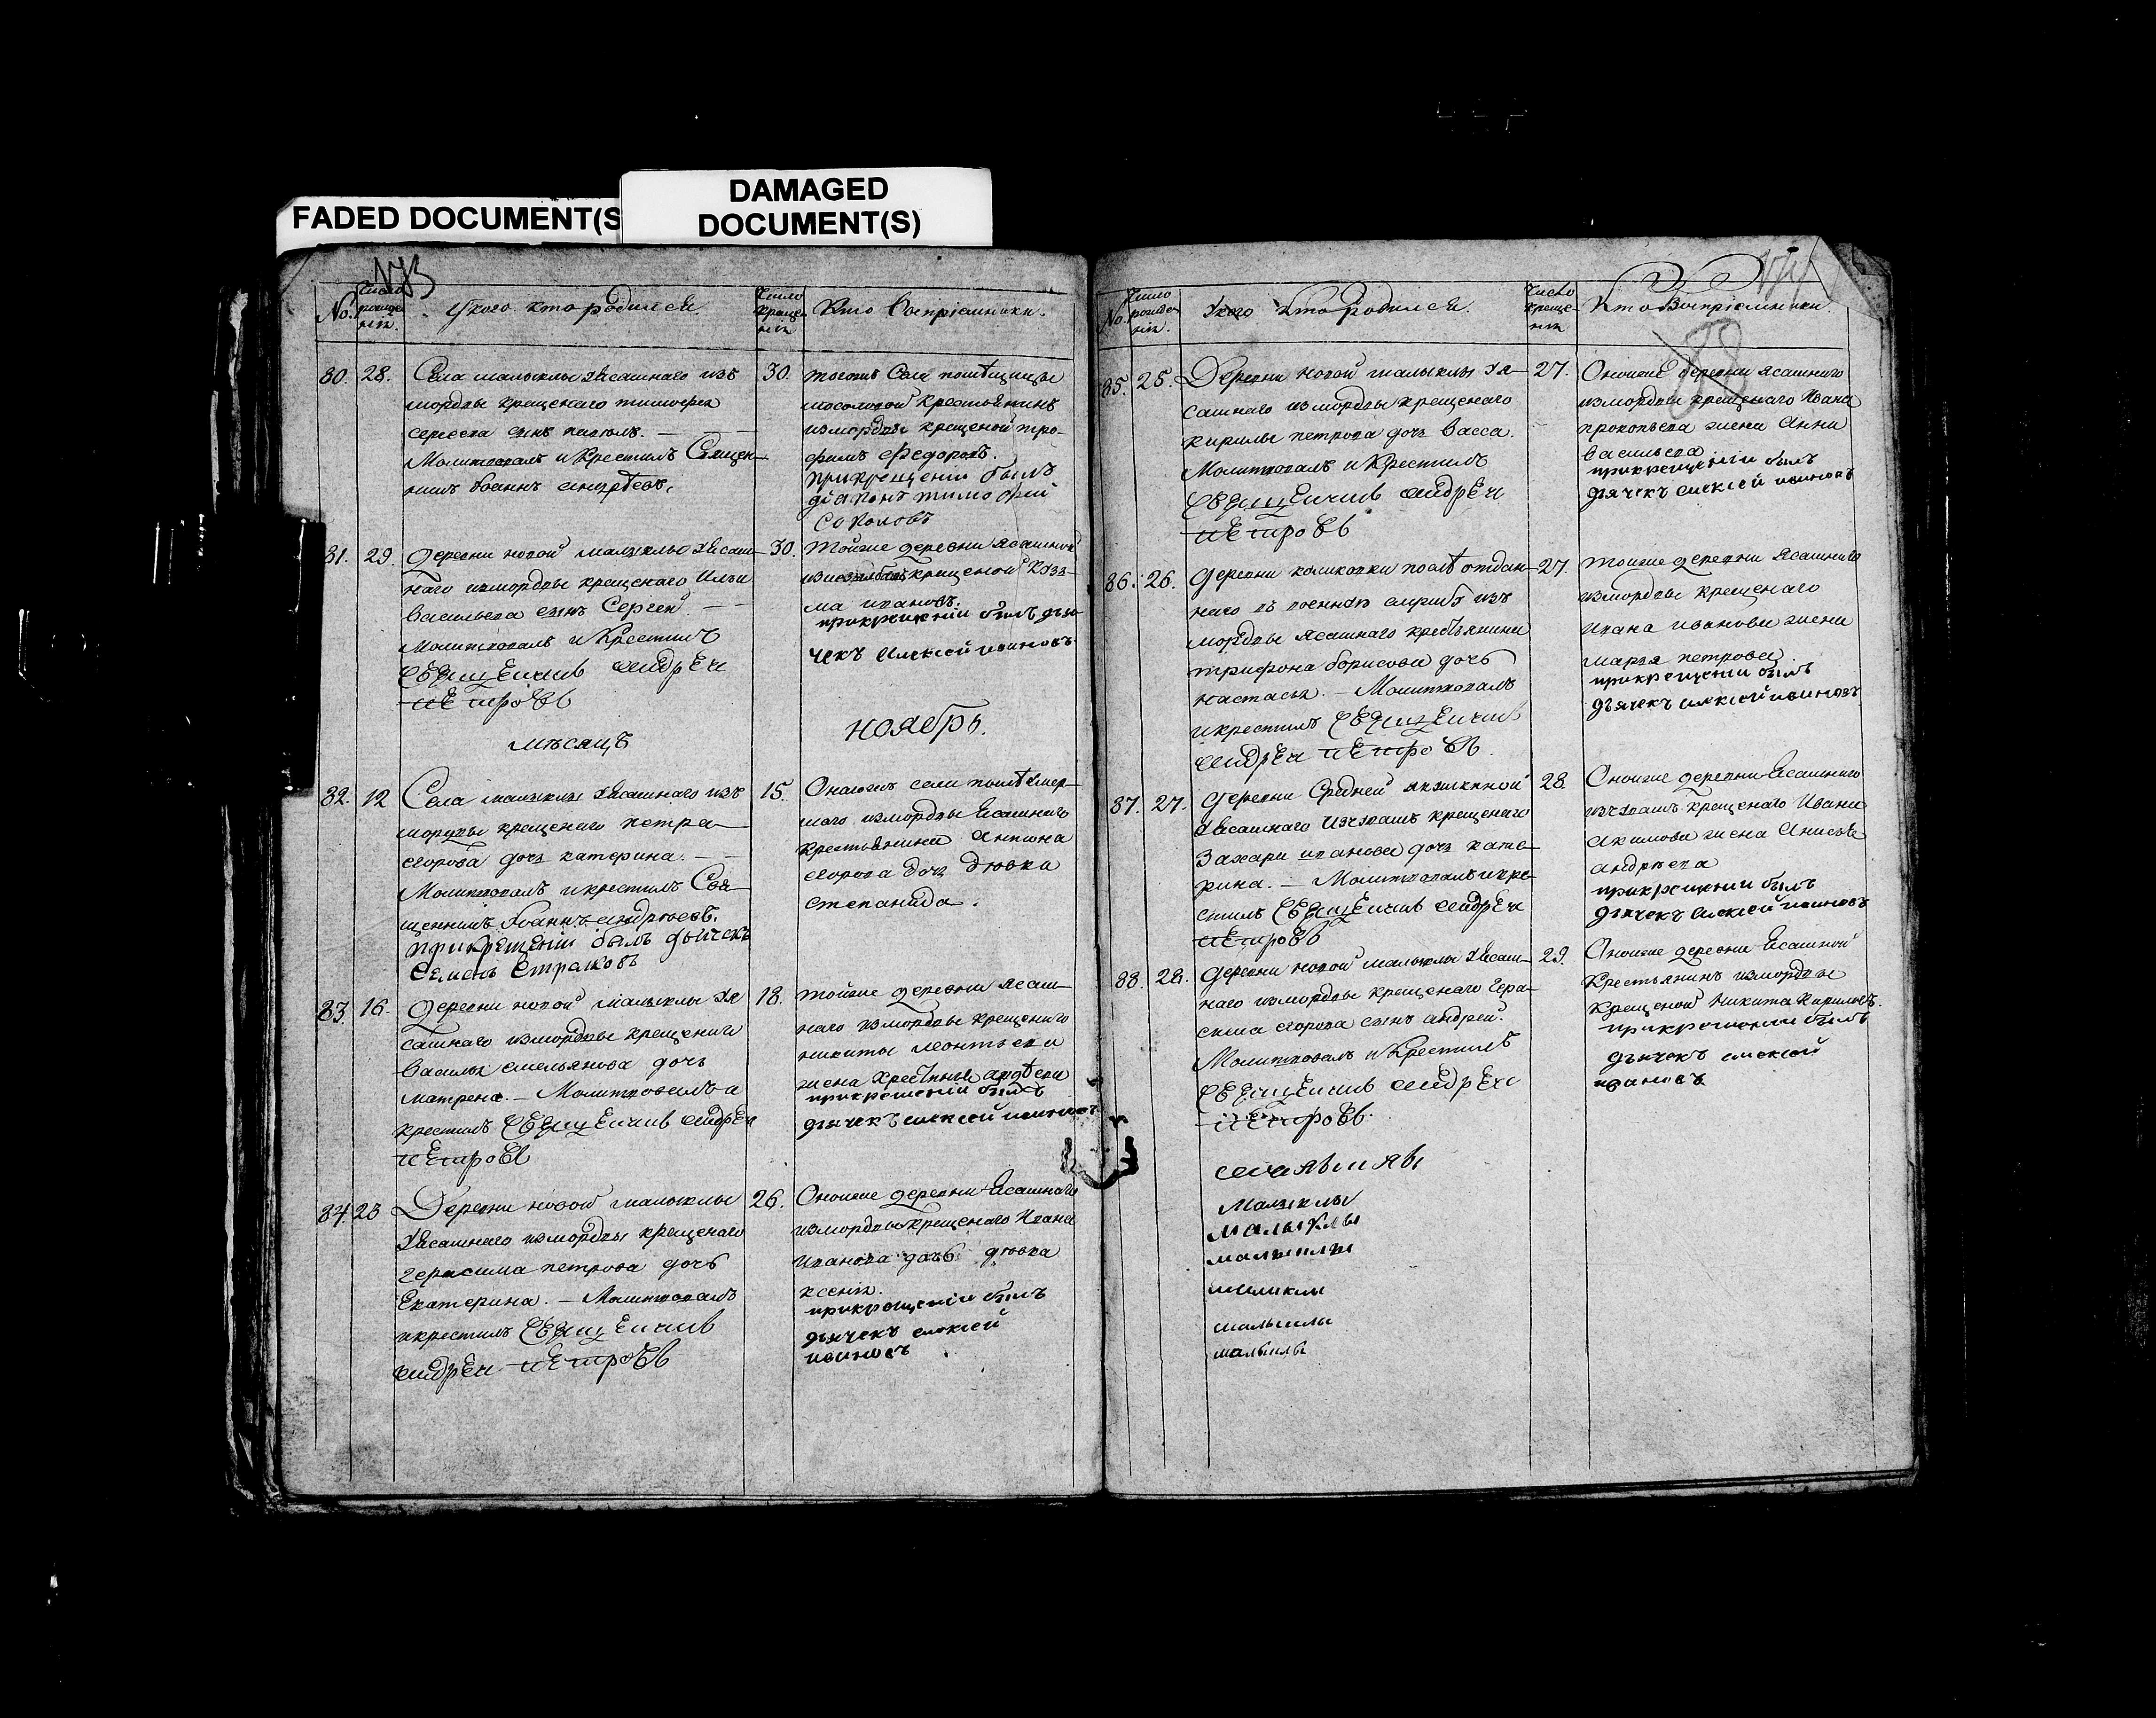 FADED DOCUMENT(S
DAMAGED
DOCUMENT(S)
173
No.
Число рожде-нія.
У кого кто родился
Число креще-нія
Кто восприемники.
80. 28.
Села малыклы ясашнаго изъ
мордвы крещенаго тимофея
сергеева сынъ павелъ.
Молитвовалъ и Крестилъ Священ-
никъ Иоаннъ андреевъ.
30.
тогожъ села помѣщицы
мосоловой крестьянинъ
измордвы крещеной тро-
фимъ Федоровъ.
прикрещении былъ
діаконъ тимофей
Соколовъ
81. 29.
деревни новой малыклы ясаш-
наго измордвы крещенаго Ильи
васильева сынъ Сергей.
Молитвовалъ и Крестилъ
Священникъ андрей
петровъ
30.
тойже деревни ясашной
крещеной Козь-
ма ивановъ.
прикрещении былъ дья-
чекъ алексей ивановъ
мѣсяцъ
ноябрь.
82. 12
Села малыклы ясашнаго изъ
мордвы крещенаго петра
егорова дочь катерина.
Молитвовалъ и крестилъ Свя-
щенникъ Иоаннъ андреевъ.
прикрещении былъ дьячекъ
Семенъ Страховъ
15.
Онагожъ села помѣ
щаго измордвы ясашнаго
крестьянина
егорова дочь дѣвка
степанида.
83. 16.
деревни новой малыклы уя
сашнаго измордвы крещенаго
василья емельянова дочь
матрена. — Молитвовалъ и
крестилъ Священникъ андрей
петровъ
18.
тойже деревни ясаш-
наго измордвы крещенаго
никиты леонтьева
жена
прикрещении былъ
дьячекъ алексей ивановъ
84. 23
Деревни новой малыклы
уясашнаго измордвы крещенаго
герасима петрова дочь
Екатерина. — Молитвовалъ
икрестилъ Священникъ
андрей петровъ
26.
Оноиже деревни ясашнаго
измордвы крещенаго Ивана
иванова дочь дѣвка
ксенія.
прикрещении былъ
дьячекъ алексей
ивановъ
No.
Число рожде-нія.
У кого кто родился.
Число креще-нія
Кто восприемники.
88
85. 25.
Деревни новой малыклы уя-
сашнаго измордвы крещенаго
кирилы петрова дочь васса.
Молитвовалъ и Крестилъ
Священникъ андрей
петровъ
27.
Оноиже деревни ясашнаго
измордвы крещенаго Ивана
прокопьева жена Анна
васильева
прикрещении былъ
дьячекъ алексей ивановъ
86. 26.
деревни послѣ отдан-
наго въ военную службу изъ
мордвы ясашнаго крестьянина
трифона борисова дочь
настасья. — Молитвовалъ
икрестилъ Священникъ
андрей петровъ.
27.
тоиже деревни ясашнаго
измордвы крещенаго
ивана иванова жена
марья петрова
прикрещении былъ
дьячекъ алексей ивановъ
87. 27.
деревни Средней якушкиной
уясашнаго изчувашъ крещенаго
Захара иванова дочь кате-
рина. — Молитвовалъ икре-
стилъ Священникъ андрей
петровъ
28.
Оноиже деревни ясашнаго
изчувашъ крещенаго Ивана
акимова жена Анисья
андреева
прикрещении былъ
дьячекъ алексей ивановъ
88. 28.
деревни новой малыклы уясаш-
наго измордвы крещенаго Гера-
сима егорова сынъ андрей.
Молитвовалъ и Крестилъ
Священникъ андрей
петровъ.
29.
Оноиже деревни ясашной
крестьянинъ измордвы
крещеной никита Кириловъ.
прикрещении былъ
дьячекъ алексей
ивановъ
малыклы
малыклы
малыклы
малыклы
малыклы
малыклы